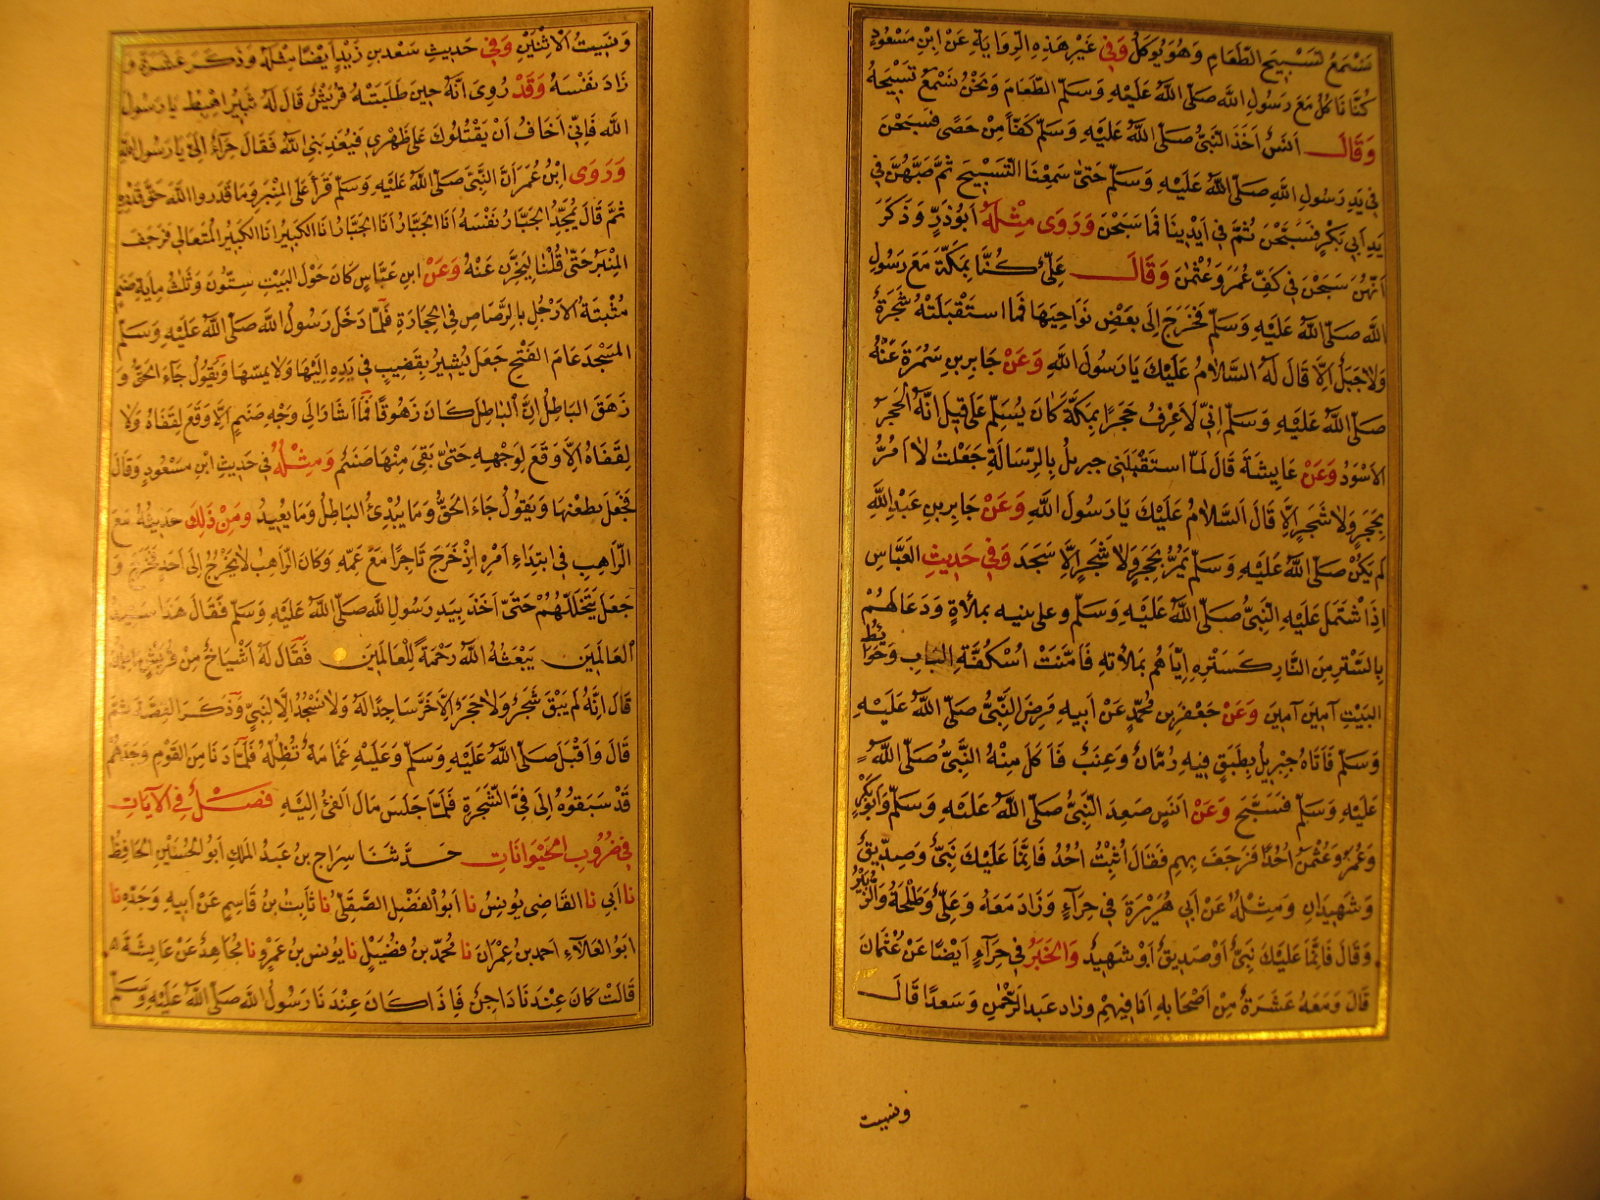 نَسْمَعُ تَسْبِيحَ الطَّعَامِ وَهُوَ يُوكَلُ وَفِي غَيْرِ هَذِهِ الرِّوَايَةِ عَنْ ابْنِ مَسْعُودٍ
كُنَّا نَاكُلُ مَعَ رَسُولِ اللَّهِ صَلَّى اللَّهُ عَلَيْهِ وَسَلَّمَ الطَّعَامَ وَنَحْنُ نَسْمَعُ تَسْبِيحَهُ
وَقَالَ أَنَسٌ أَخَذَ النَّبِيُّ صَلَّى اللَّهُ عَلَيْهِ وَسَلَّمَ كَفّاً مِنْ حَصًى فَسَبَّحْنَ
فِي يَدِ رَسُولِ اللَّهِ صَلَّى اللَّهُ عَلَيْهِ وَسَلَّمَ حَتَّى سَمِعْنَا التَّسْبِيحَ ثُمَّ صَبَّهُنَّ فِي
يَدِ أَبِي بَكْرٍ فَسَبَّحْنَ ثُمَّ فِي أَيْدِينَا فَمَا سَبَّحْنَ وَرَوَى مِثْلَهُ أَبُو ذَرٍّ وَذَكَرَ
أَنَّهُنَّ سَبَّحْنَ فِي كَفِّ عُمَرَ وَعُثْمَنَ وَقَالَ عَلِيٌّ كُنَّا بِمَكَّةَ مَعَ رَسُولِ
اللَّهِ صَلَّى اللَّهُ عَلَيْهِ وَسَلَّمَ فَخَرَجَ إِلَى بَعْضِ نَوَاحِيهَا فَمَا اسْتَقْبَلَتْهُ شَجَرَةٌ
وَلَا جَبَلٌ إِلَّا قَالَ لَهُ السَّلَامُ عَلَيْكَ يَا رَسُولَ اللَّهِ وَعَنْ جَابِرِ بْنِ سَمُرَةَ عَنْهُ
صَلَّى اللَّهُ عَلَيْهِ وَسَلَّمَ إِنِّي لَأَعْرِفُ حَجَرًا بِمَكَّةَ كَانَ يُسَلِّمُ عَلَيَّ قِيلَ إِنَّهُ الْحَجَرُ
الْأَسْوَدُ وَعَنْ عَايِشَةَ قَالَ لَمَّا اسْتَقْبَلَنِي جِبْرِيلُ بِالرِّسَالَةِ جَعَلْتُ لَا أَمُرُّ
بِحَجَرٍ وَلَا شَجَرٍ إِلَّا قَالَ السَّلَامُ عَلَيْكَ يَا رَسُولَ اللَّهِ وَعَنْ جَابِرِ بْنِ عَبْدِ اللَّهِ
لَمْ يَكُنْ صَلَّى اللَّهُ عَلَيْهِ وَسَلَّمَ يَمُرُّ بِحَجَرٍ وَلَا شَجَرٍ إِلَّا سَجَدَ وَفِي حَدِيثِ الْعَبَّاسِ
إِذَا شْتَمَلَ عَلَيْهِ النَّبِيُّ صَلَّى اللَّهُ عَلَيْهِ وَسَلَّمَ وَعَلَى بَنِيهِ بِمُلَأَةٍ وَدَعَا لَهُمْ
بِالسَّتْرِ مِنَ النَّارِ كَسَتْرِهِ إِيَّاهُمْ بِمُلَاتِهِ فَأَمَّنَتْ أُسْكُفَّةِ الْبَابِ وَحَوَايِطُ
الْبَيْتِ آمِينَ آمِينَ وَعَنْ جَعْفَرِ بْنِ مُحَمَّدٍ عَنْ أَبِيهِ مَرِضَ النَّبِيُّ صَلَّى اللَّهُ عَلَيْهِ
وَسَلَّمَ فَأَتَاهُ جِبْرِيلُ بِطَبَقٍ فِيهِ رُمَّانٌ وَعِنَبٌ فَأَكَلَ مِنْهُ النَّبِيُّ صَلَّى اللَّهُ
عَلَيْهِ وَسَلَّمَ فَسَبَّحَ وَعَنْ أَنَسٍ صَعِدَ النَّبِيُّ صَلَّى اللَّهُ عَلَيْهِ وَسَلَّمَ وَأَبُو بَكْرٍ
وَعُمَرُ وَعُثْمَنُ أُحُدًا فَرَجَفَ بِهِمْ فَقَالَ اثْبُتْ أُحُدُ فَإِنَّمَا عَلَيْكَ نَبِيٌّ وَصِدِّيقٌ
وَشَهِيدَانِ وَمِثْلُهُ عَنْ أَبِي هُرَيْرَةَ فِي حِرَآءٍ وَزَادَ مَعَهُ وَعَلِيٌّ وَطَلْحَةُ وَالزُّبَيْرُ
وَقَالَ فَإِنَّمَا عَلَيْكَ نَبِيٌّ أَوْ صِدِّيقٌ أَوْ شَهِيدٌ وَالْخَبَرُ فِي حِرَآءٍ أَيْضًا عَنْ عُثْمَانَ
قَالَ وَمَعَهُ عَشَرَةٌ مِنْ أَصْحَابِهِ أَنَا فِيهِمْ وَزَادَ عَبْدَ الرَّحْمَنِ وَسَعْدًا قَالَ
ونسيت
وَنَسِيتُ الْاثْنَيْنِ وَفِي حَدِيثِ سَعْدِ بْنِ زَيْدٍ أَيْضًا مِثْلَهُ وَذَكَرَ عَشَرَةً وَ
زَادَ نَفْسَهُ وَقَدْ رُوِيَ أَنَّهُ حِينَ طَلَبَتْهُ قُرَيْشٌ قَالَ لَهُ ثَبِيرٌ اهْبِطْ يَا رَسُولَ
اللَّهِ فَإِنِّي أَخَافُ أَنْ يَقْتُلُوكَ عَلَى ظَهْرِي فَيُعَذِّبَنِي اللَّهُ فَقَالَ حِرَآءٌ إِلَيَّ يَا رَسُولَ اللَّهِ
وَرَوَى ابْنُ عُمَرَ أَنَّ النَّبِيَّ صَلَّى اللَّهُ عَلَيْهِ وَسَلَّمَ قَرَأَ عَلَى الْمِنْبَرِ وَمَا قَدَرُوا اللَّهَ حَقَّ قَدْرِهِ
ثُمَّ قَالَ يُمَجِّدُ الْجَبَّارُ نَفْسَهُ أَنَا الْجَبَّارُ أَنَا الْجَبَّارُ أَنَا الْكَبِيرُ أَنَا الْكَبِيرُ الْمُتَعَالِي فَرَجَفَ
الْمِنْبَرُ حَتَّى قُلْنَا لَيَخِرَّنَّ عَنْهُ وَعَنْ ابْنِ عَبَّاسٍ كَانَ حَوْلَ الْبَيْتِ سِتُّونَ وَثَلَثُ مِايَةِ صَنَمٍ
مُثْبَتَةُ الْأَرْجُلِ بِالرَّصَاصِ فِي الْحِجَارَةِ فَلَمَّا دَخَلَ رَسُولُ اللَّهِ صَلَّى اللَّهُ عَلَيْهِ وَسَلَّمَ
الْمَسْجِدَ عَامَ الْفَتْحِ جَعَلَ يُشِيرُ بِقَضِيبٍ فِي يَدِهِ إِلَيْهَا وَلَا يَمَسُّهَا وَيَقُولُ جَاءَ الْحَقُّ وَ
زَهَقَ الْبَاطِلُ إِنَّ الْبَاطِلَ كَانَ زَهُوقًا فَمَا أَشَارَ إِلَى وَجْهِ صَنَمٍ إِلَّا وَقَعَ لِقَفَاهُ وَلَا
لِقَفَاهُ إِلَّا وَقَعَ لِوَجْهِهِ حَتَّى بَقِيَ مِنْهَا صَنَمٌ وَمِثْلُهُ فِي حَدِيثِ ابْنِ مَسْعُودٍ وَقَالَ
فَجَعَلَ يَطْعَنُهَا وَيَقُولُ جَاءَ الْحَقُّ وَمَا يُبْدِئُ الْبَاطِلُ وَمَا يُعِيدُ وَمِنْ ذَلِكَ حَدِيثُهُ مَعَ
الرَّاهِبِ فِي ابْتِدَاءِ أَمْرِهِ إِذْ خَرَجَ تَاجِرًا مَعَ عَمِّهِ وَكَانَ الرَّاهِبُ لَا يَخْرُجُ إِلَى أَحَدٍ فَخَرَجَ وَ
جَعَلَ يَتَخَلَّلُهُمْ حَتَّى أَخَذَ بِيَدِ رَسُولِ اللَّهِ صَلَّى اللَّهُ عَلَيْهِ وَسَلَّمَ فَقَالَ هَذَا سَيِّدُ
الْعَالَمِينَ يَبْعَثُهُ اللَّهُ رَحْمَةً لِلْعَالَمِينَ فَقَالَ لَهُ أَشْيَاخٌ مِنْ قُرَيْشٍ
قَالَ إِنَّهُ لَمْ يَبْقَ شَجَرٌ وَلَا حَجَرٌ إِلَّا خَرَّ سَاجِدًا لَهُ وَلَا تَسْجُدُ إِلَّا لِنَبِيٍّ وَذَكَرَ الْقِصَّةَ ثُمَّ
قَالَ وَأَقْبَلَ صَلَّى اللَّهُ عَلَيْهِ وَسَلَّمَ وَعَلَيْهِ غَمَامَةٌ تُظِلُّهُ فَلَمَّا دَنَا مِنَ الْقَوْمِ وَجَدَهُمْ
قَدْ سَبَقُوهُ إِلَى فَيْءِ الشَّجَرَةِ فَلَمَّا جَلَسَ مَالَ الْفَيْءُ إِلَيْهِ فَصْلٌ فِي الْآيَاتِ
فِي ضُرُوبِ الْحَيَوَانَاتِ حَدَّثَنَا سِرَاجُ بْنُ عَبْدِ الْمَلِكِ أَبُو الْحُسَيْنِ الْحَافِظُ
نا أَبِي نا الْقَاضِي يُونُسُ نا أَبُو الْفَضْلِ الصَّقَلِّيُّ نا ثَابِتُ بْنُ قَاسِمٍ عَنْ أَبِيهِ وَجَدِّهِ نا
أَبُو الْعَلَآءِ أَحْمَدُ بْنُ عِمْرَانَ نا مُحَمَّدُ بْنُ فُضَيْلٍ نا يُونُسُ بْنُ عَمْرٍو نا مُجَاهِدٌ عَنْ عَايِشَةَ
قَالَتْ كَانَ عِنْدَنَا دَاجِنٌ فَإِذَا كَانَ عِنْدَنَا رَسُولُ اللَّهِ صَلَّى اللَّهُ عَلَيْهِ وَسَلَّمَ